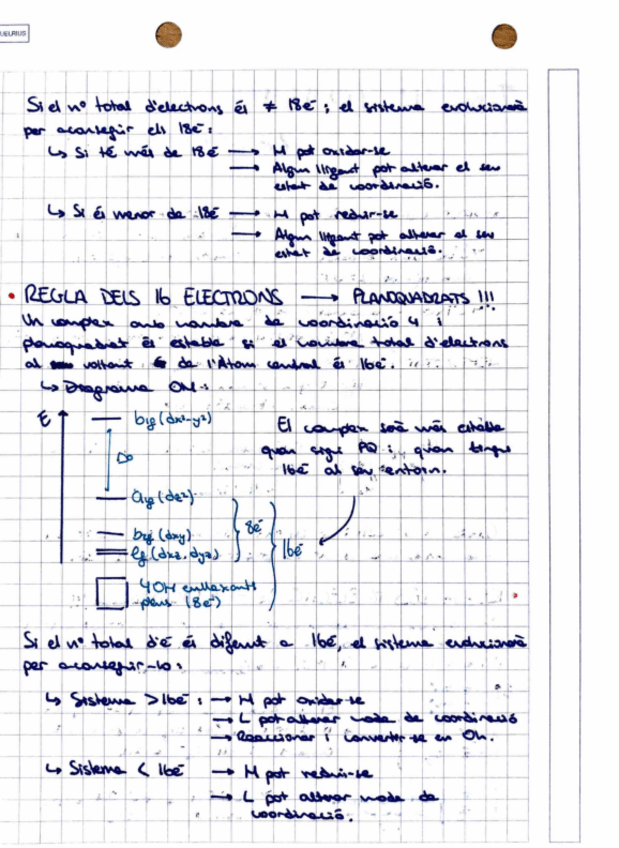 Si el nº total d'electrons és ≠ 18e⁻; el sistema evolucionarà
per aconseguir els 18e⁻:
↳ Si té més de 18e⁻ → M pot oxidar-se
→ Algun lligant pot alterar el seu
estat de coordinació.
↳ Si és menor de 18e⁻ → M pot reduir-se
→ Algun lligant pot alterar el seu
estat de coordinació.
• REGLA DELS 16 ELECTRONS → PLANOQUADRATS !!!
Un complex amb nombre de coordinació 4 i
planoquadrat és estable si el nombre total d'electrons
al voltant de l'àtom central és 16e⁻.
↳ Diagrama OM:
E
b1g (dx²-y²)
El complex serà més estable
quan sigui PQ i quan tingui
16e⁻ al seu entorn.
Δo
a1g (dz²)
b2g (dxy)
8e⁻
eg (dxz, dyz)
16e⁻
4 OM enllaxants
plens (8e⁻)
Si el nº total d'e⁻ és diferent a 16e⁻, el sistema evolucionarà
per aconseguir-lo:
↳ Sistema > 16e⁻ : → M pot oxidar-se
→ L pot alterar mode de coordinació
→ Reaccionar i convertir-se en Oh.
↳ Sistema < 16e⁻ → M pot reduir-se
→ L pot alterar mode de
coordinació.